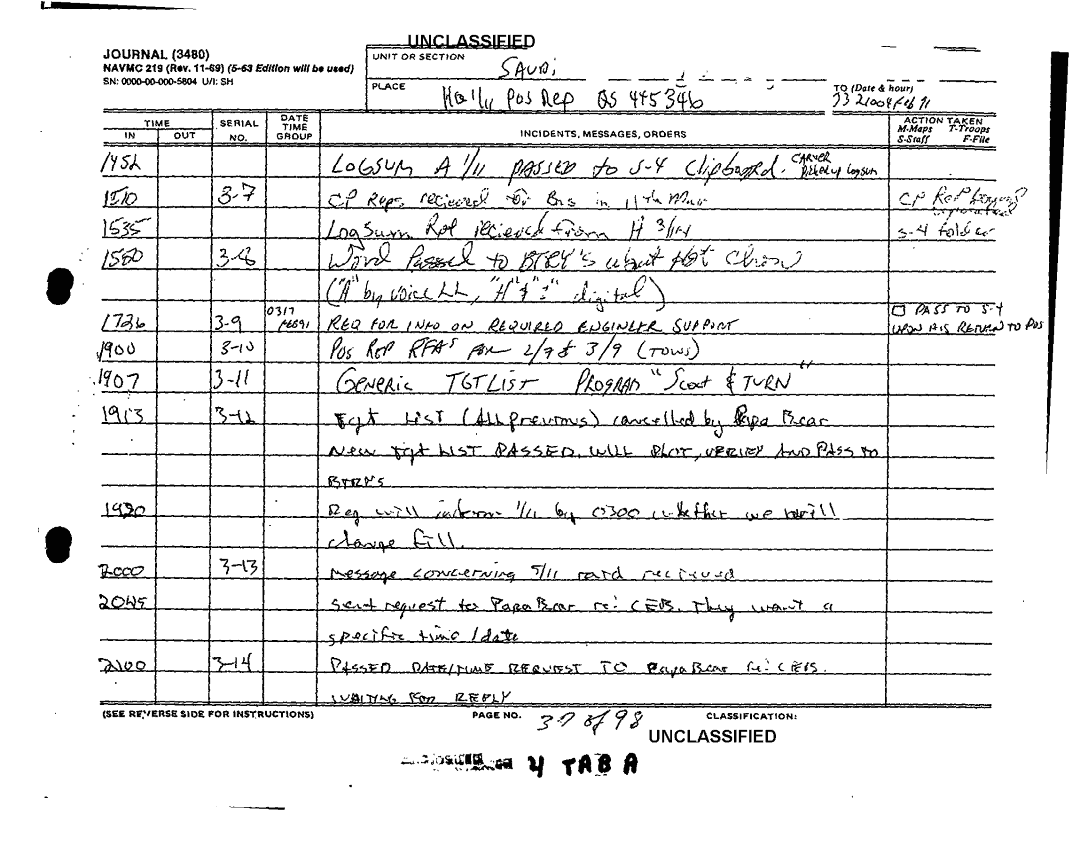 UNCLASSIFIED
JOURNAL (3480)
NAVMC 219 (Rev. 11-69) (5-63 Edition will be used)
SN: 0000-00-000-5804 U/I: SH
UNIT OR SECTION
SAUDI
PLACE
Hally Pos Rep QS 445346
TO (Date & hour)
TIME
IN OUT
SERIAL NO.
DATE TIME GROUP
INCIDENTS, MESSAGES, ORDERS
ACTION TAKEN
M-Maps T-Troops
S-Staff F-File
1452 LOGSUM A 1/11 PASSED to S-4 Clipboard. CARVER Picked up Logsum
1510 3-7 CP Reps. recieved for Bns in 11th Mar CP Rep
1535 LogSum Rpt recieved from H 3/14 S-4 folder
1550 3-8 Word Passed to BTRY's about Hot Chow
("A" by voice LL, "H" & "I" digital)
1726 3-9 0317 FEB91 REQ FOR INFO ON REQUIRED ENGINEER SUPPORT □ PASS TO S-4
UPON HIS RETURN TO POS
1900 3-10 Pos Rep RFA's for 2/9 & 3/9 (TOWS)
1907 3-11 GENERIC TGT LIST PROGRAM "Scoot & TURN"
1913 3-12 Tgt LIST (All previous) cancelled by Papa Bear
New Tgt LIST PASSED, WILL PLOT, VERIFY AND PASS TO
BTRY's
1930 Reg will inform 1/11 by 0300 whether we will
change fill.
2000 3-13 Message concerning 5/11 raid recieved
2045 Sent request to Papa Bear re: CEB. They want a
specific time / date
2100 3-14 PASSED DATE/TIME REQUEST TO Papa Bear re: CEB.
WAITING FOR REPLY
(SEE REVERSE SIDE FOR INSTRUCTIONS)
PAGE NO. 37 of 98
CLASSIFICATION:
UNCLASSIFIED
4 TAB A